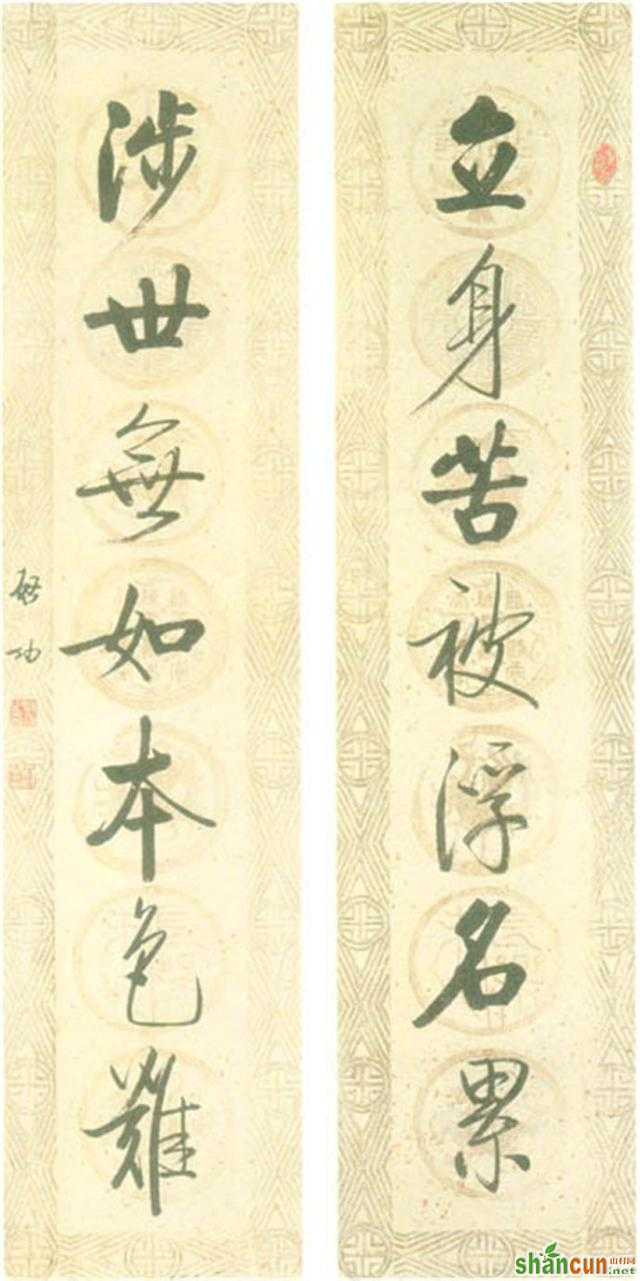 立身苦被浮名累
涉世無如本色難
啓功
shancun
山村网
.net